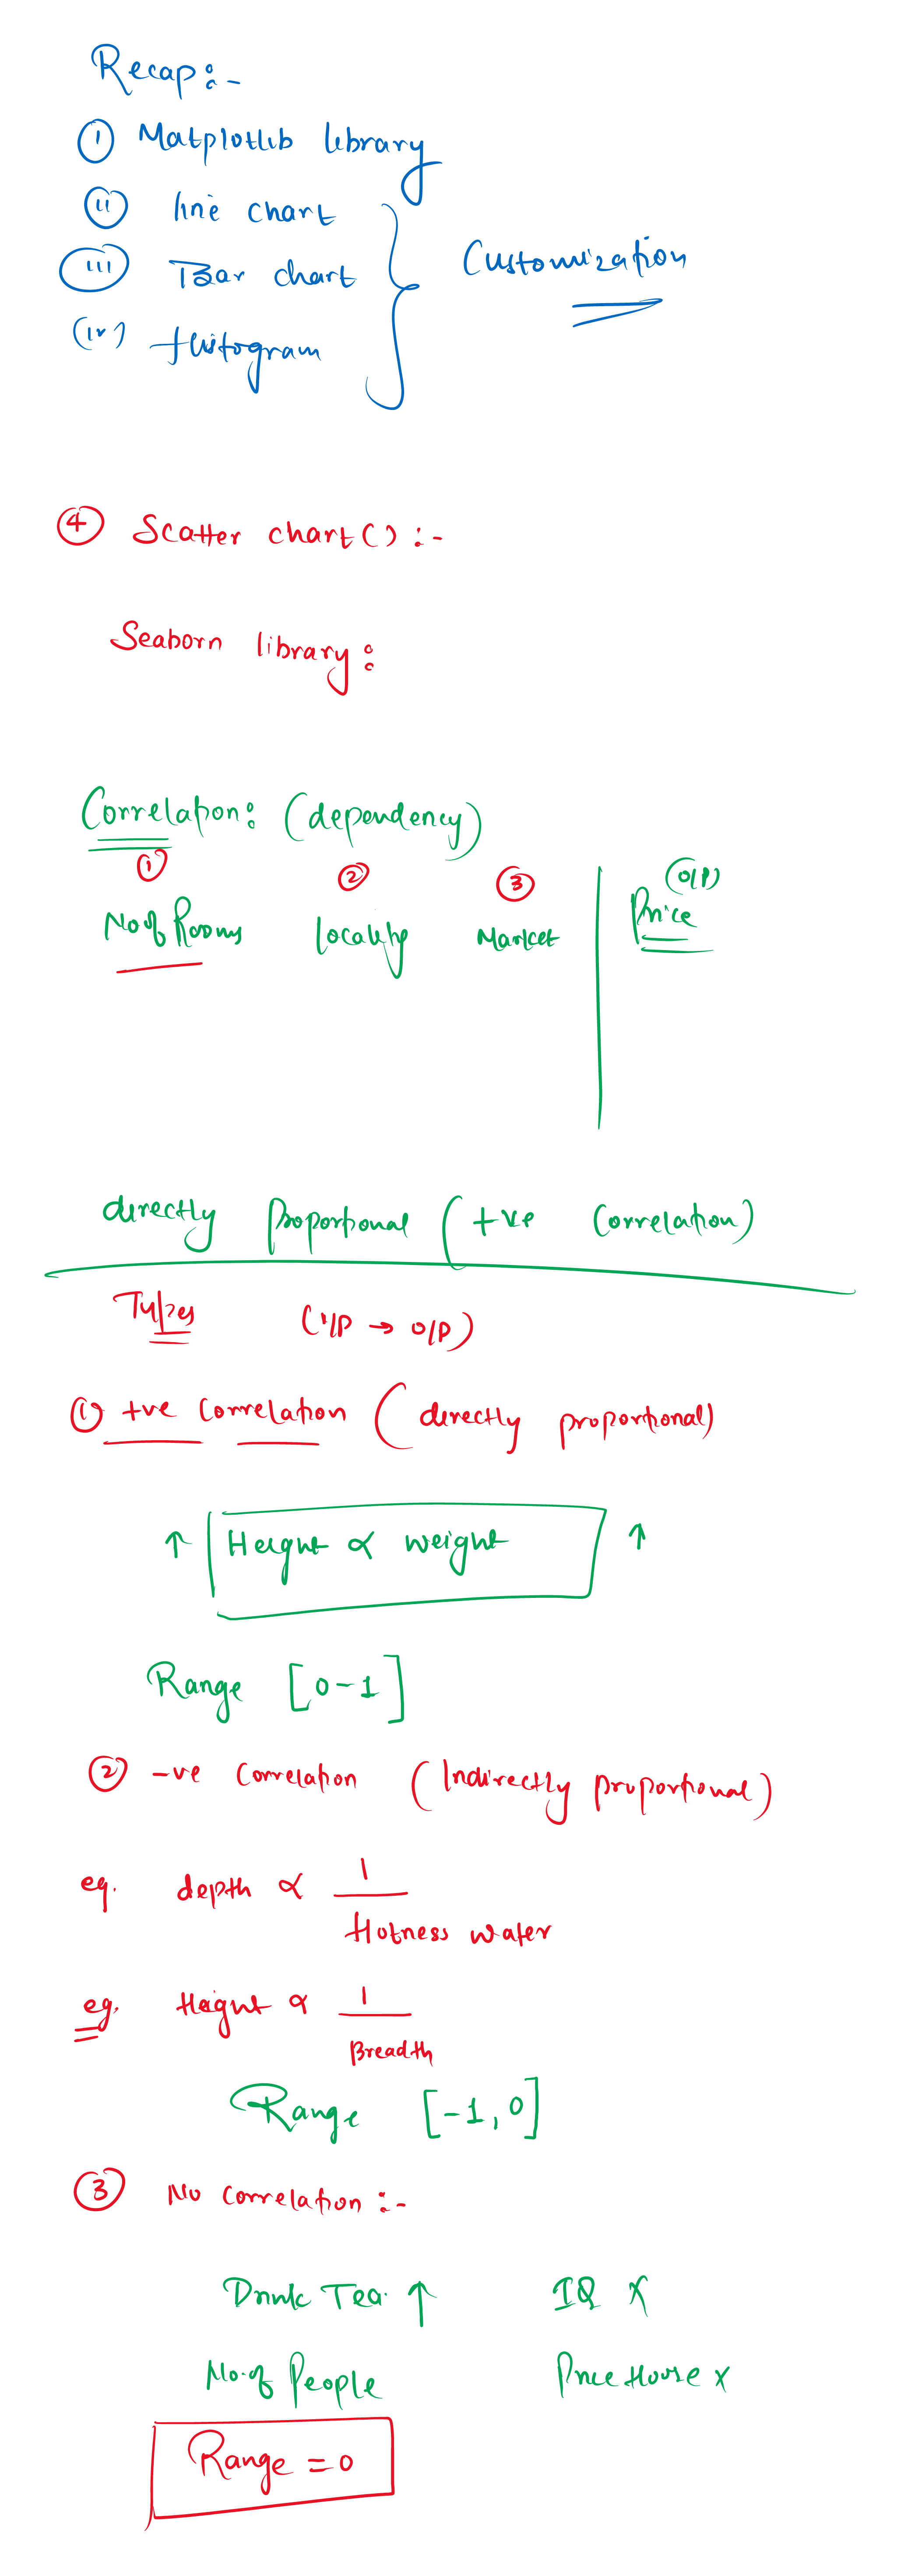 Recap:-
(i) Matplotlib library
(ii) line chart
(iii) Bar chart
Customization
(iv) Histogram
(4) Scatter chart():-
Seaborn library:
Correlation: (dependency)
(1) (2) (3) (O/P)
No of Rooms Locality Market Price
directly proportional (+ve Correlation)
Types (I/P → O/P)
(1) +ve Correlation (directly proportional)
↑ Height ∝ weight ↑
Range [0-1]
(2) -ve Correlation (Indirectly proportional)
eg. depth ∝ 1
Hotness water
eg. Height ∝ 1
Breadth
Range [-1,0]
(3) No correlation:-
Drink Tea ↑ IQ X
No. of People Price House x
Range = 0